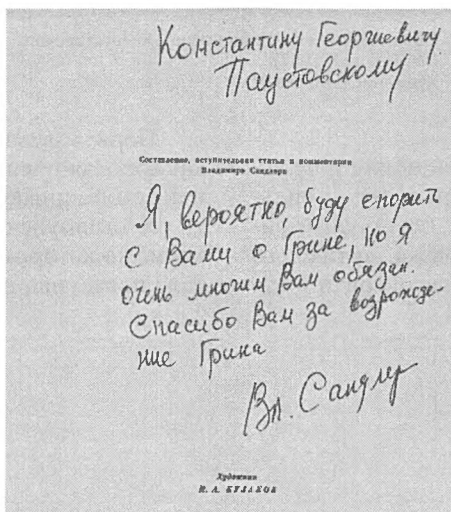 Константину Георгиевичу
Паустовскому
Составление, вступительная статья и комментарии
Владимира Сандлера
Я, вероятно, буду спорить
с Вами о Грине, но я
очень многим Вам обязан.
Спасибо Вам за возрожде-
ние Грина
Вл. Сандлер
Художник
И. А. КУЗАКОВ